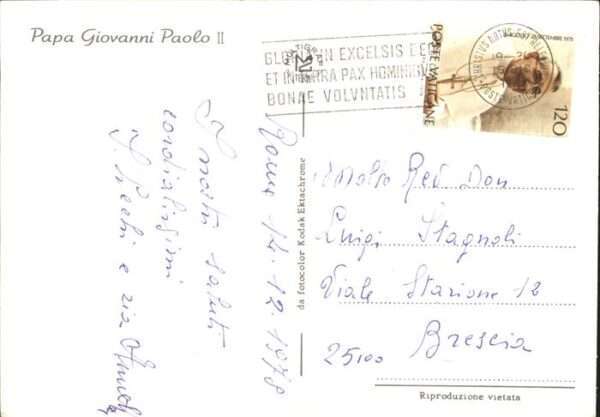 Papa Giovanni Paolo II
GLORIA IN EXCELSIS DEO
ET IN TERRA PAX HOMINIBVS
BONAE VOLVNTATIS
POSTE VATICANE
120
Roma 14.12.1978
I nostri saluti
cordialissimi
I Piechi e zia
da fotocolor Kodak Ektachrome
Molto Rev Don
Luigi Stagnoli
Viale Stazione 12
25100 Brescia
Riproduzione vietata